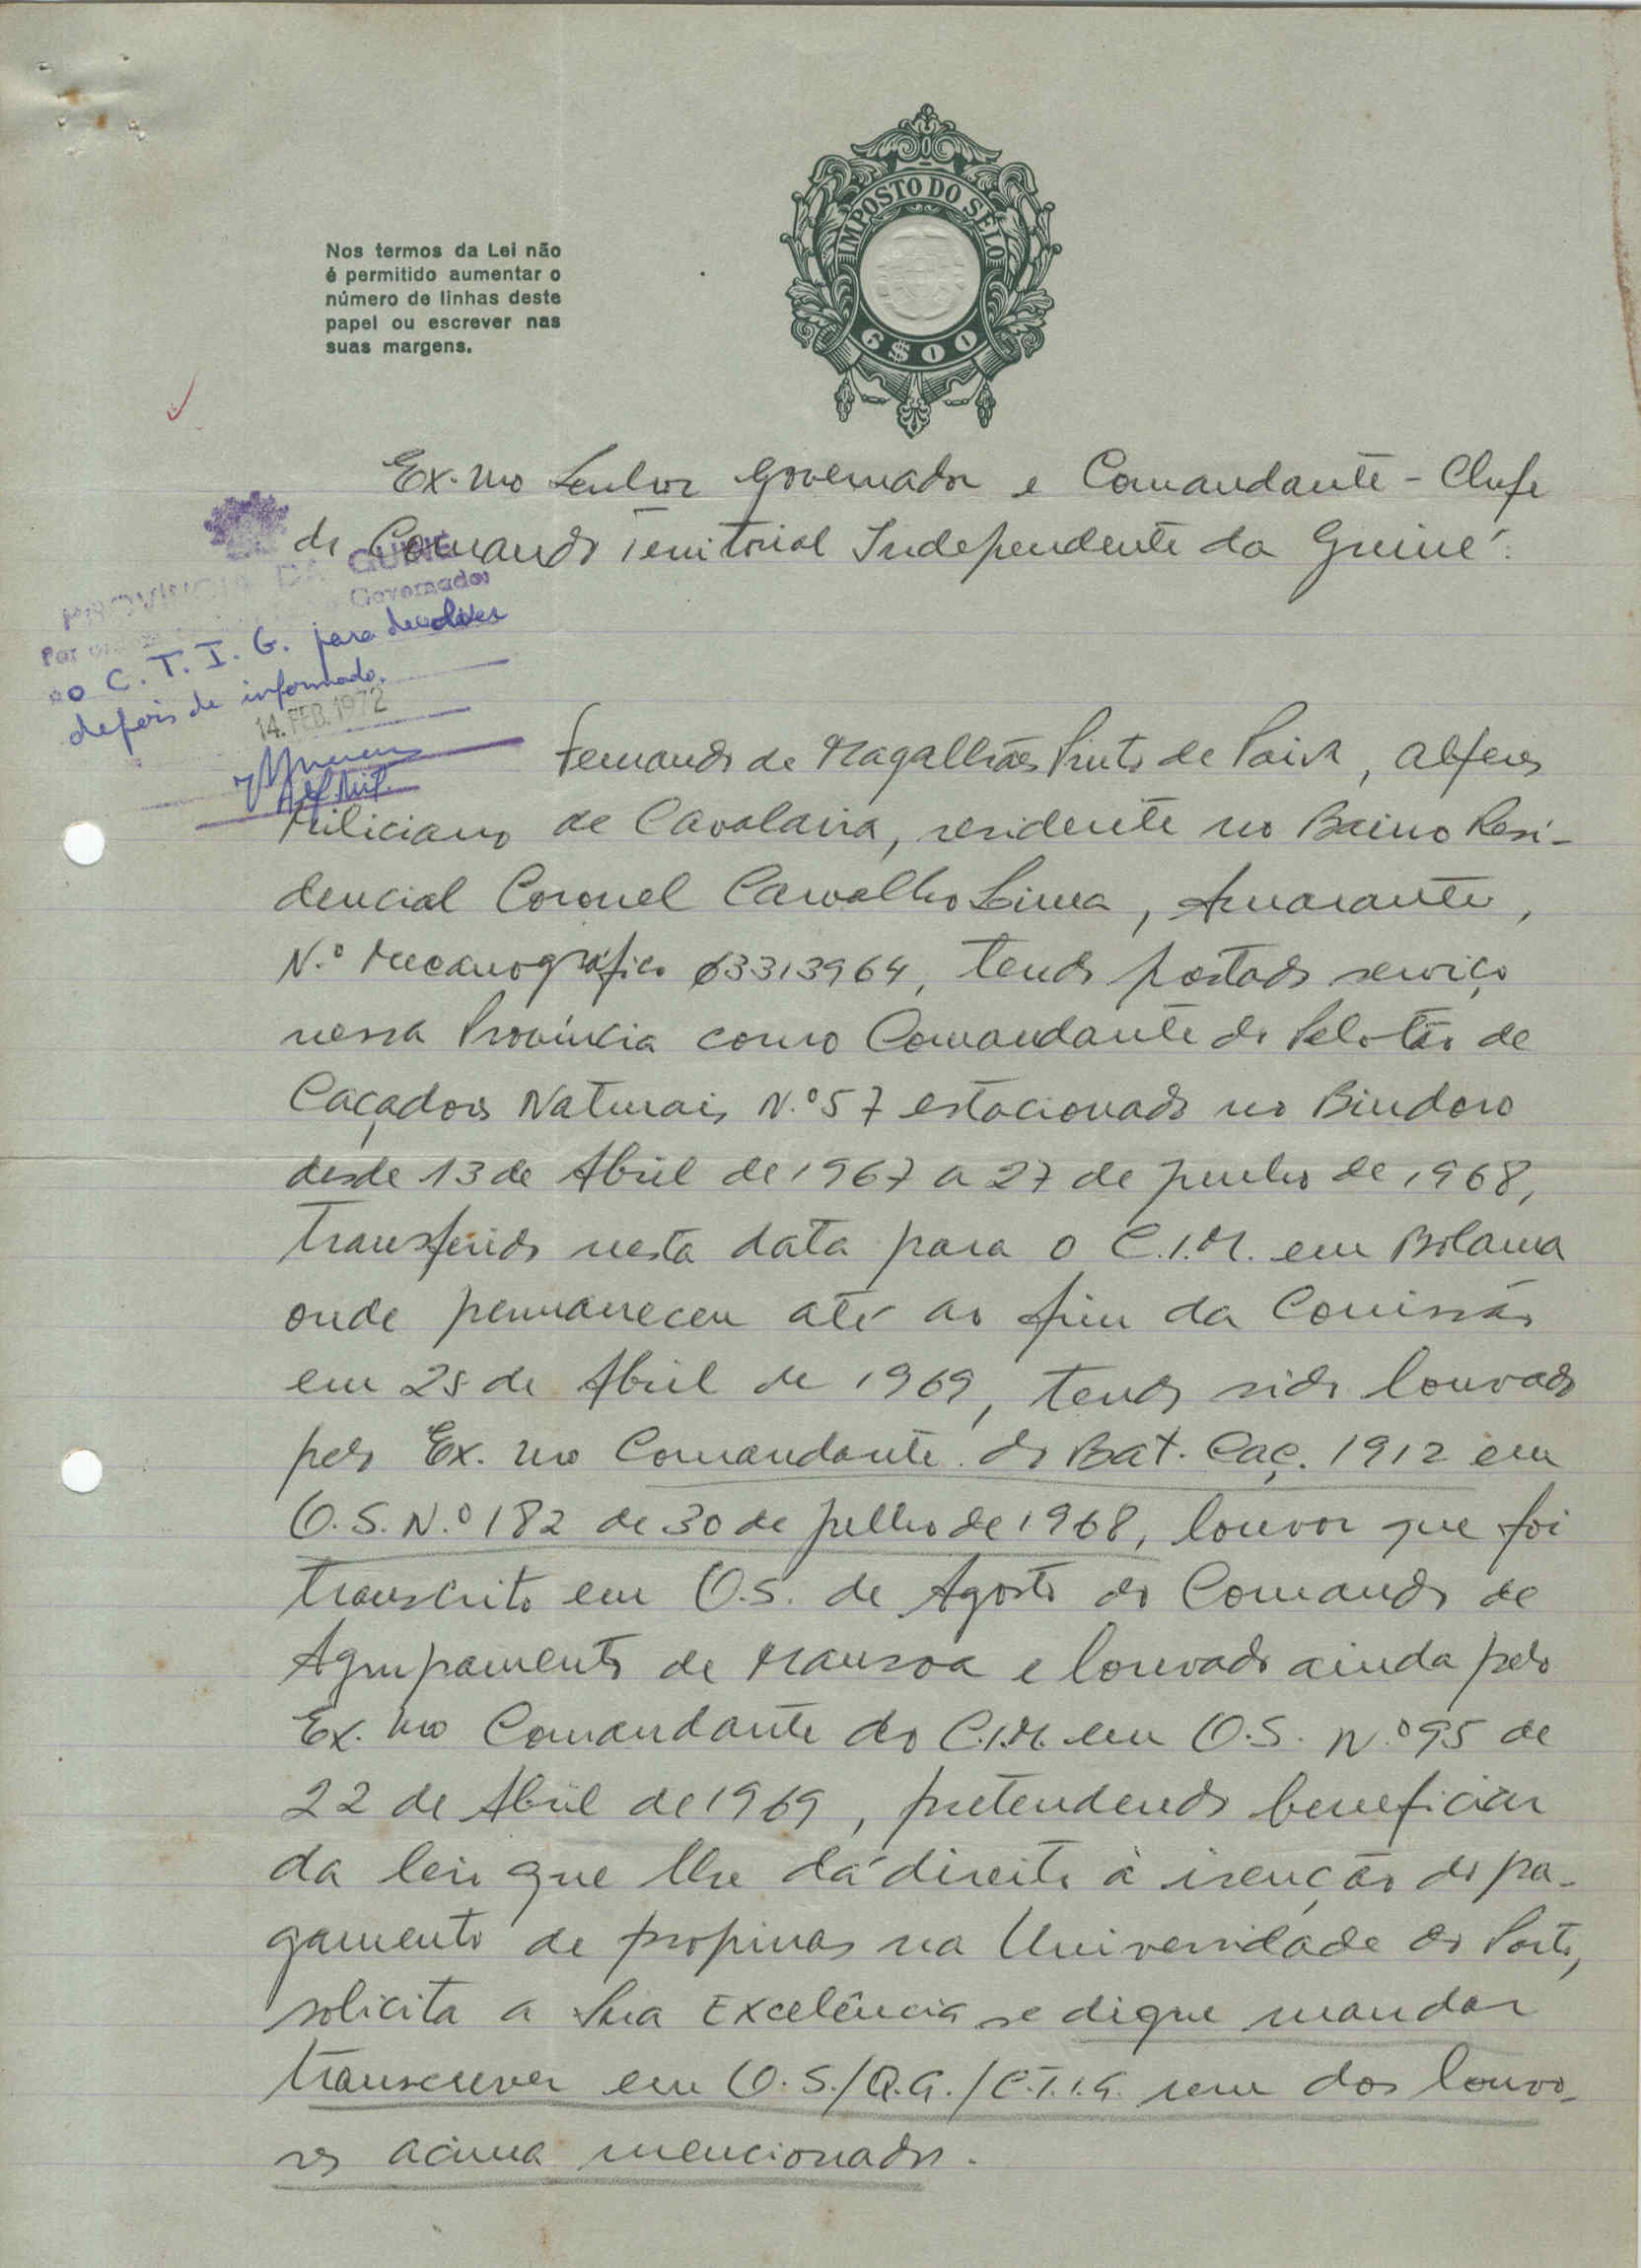 IMPOSTO DO SELO
6$00
Nos termos da Lei não
é permitido aumentar o
número de linhas deste
papel ou escrever nas
suas margens.
Ex.mo Senhor Governador e Comandante-Chefe
do Comando Territorial Independente da Guiné:
PROVINCIA DA GUINÉ
Governador
ao C. T. I. G. para devolver
depois de informado.
14. FEB. 1972
Fernando de Magalhães Pinto de Paiva, alferes
Miliciano de Cavalaria, residente no Bairro Resi-
dencial Coronel Carvalho Lima, Amarante,
N.º Mecanográfico 03313964, tendo prestado serviço
nessa Província como Comandante do Pelotão de
Caçadores Naturais N.º 57 estacionado no Bindoro
desde 13 de Abril de 1967 a 27 de Junho de 1968,
transferido nesta data para o C.I.M. em Bolama
onde permaneceu até ao fim da Comissão
em 28 de Abril de 1969, tendo sido louvado
pelo Ex.mo Comandante do Bat. Caç. 1912 em
O.S. N.º 182 de 30 de Julho de 1968, louvor que foi
transcrito em O.S. de Agosto do Comando de
Agrupamento de Mansoa e louvado ainda pelo
Ex.mo Comandante do C.I.M. em O.S. N.º 95 de
22 de Abril de 1969, pretendendo beneficiar
da lei que lhe dá direito à isenção do pa-
gamento de propinas na Universidade do Porto,
solicita a Sua Excelência se digne mandar
transcrever em O.S./Q.G./C.T.I.G. um dos louvo-
res acima mencionados.